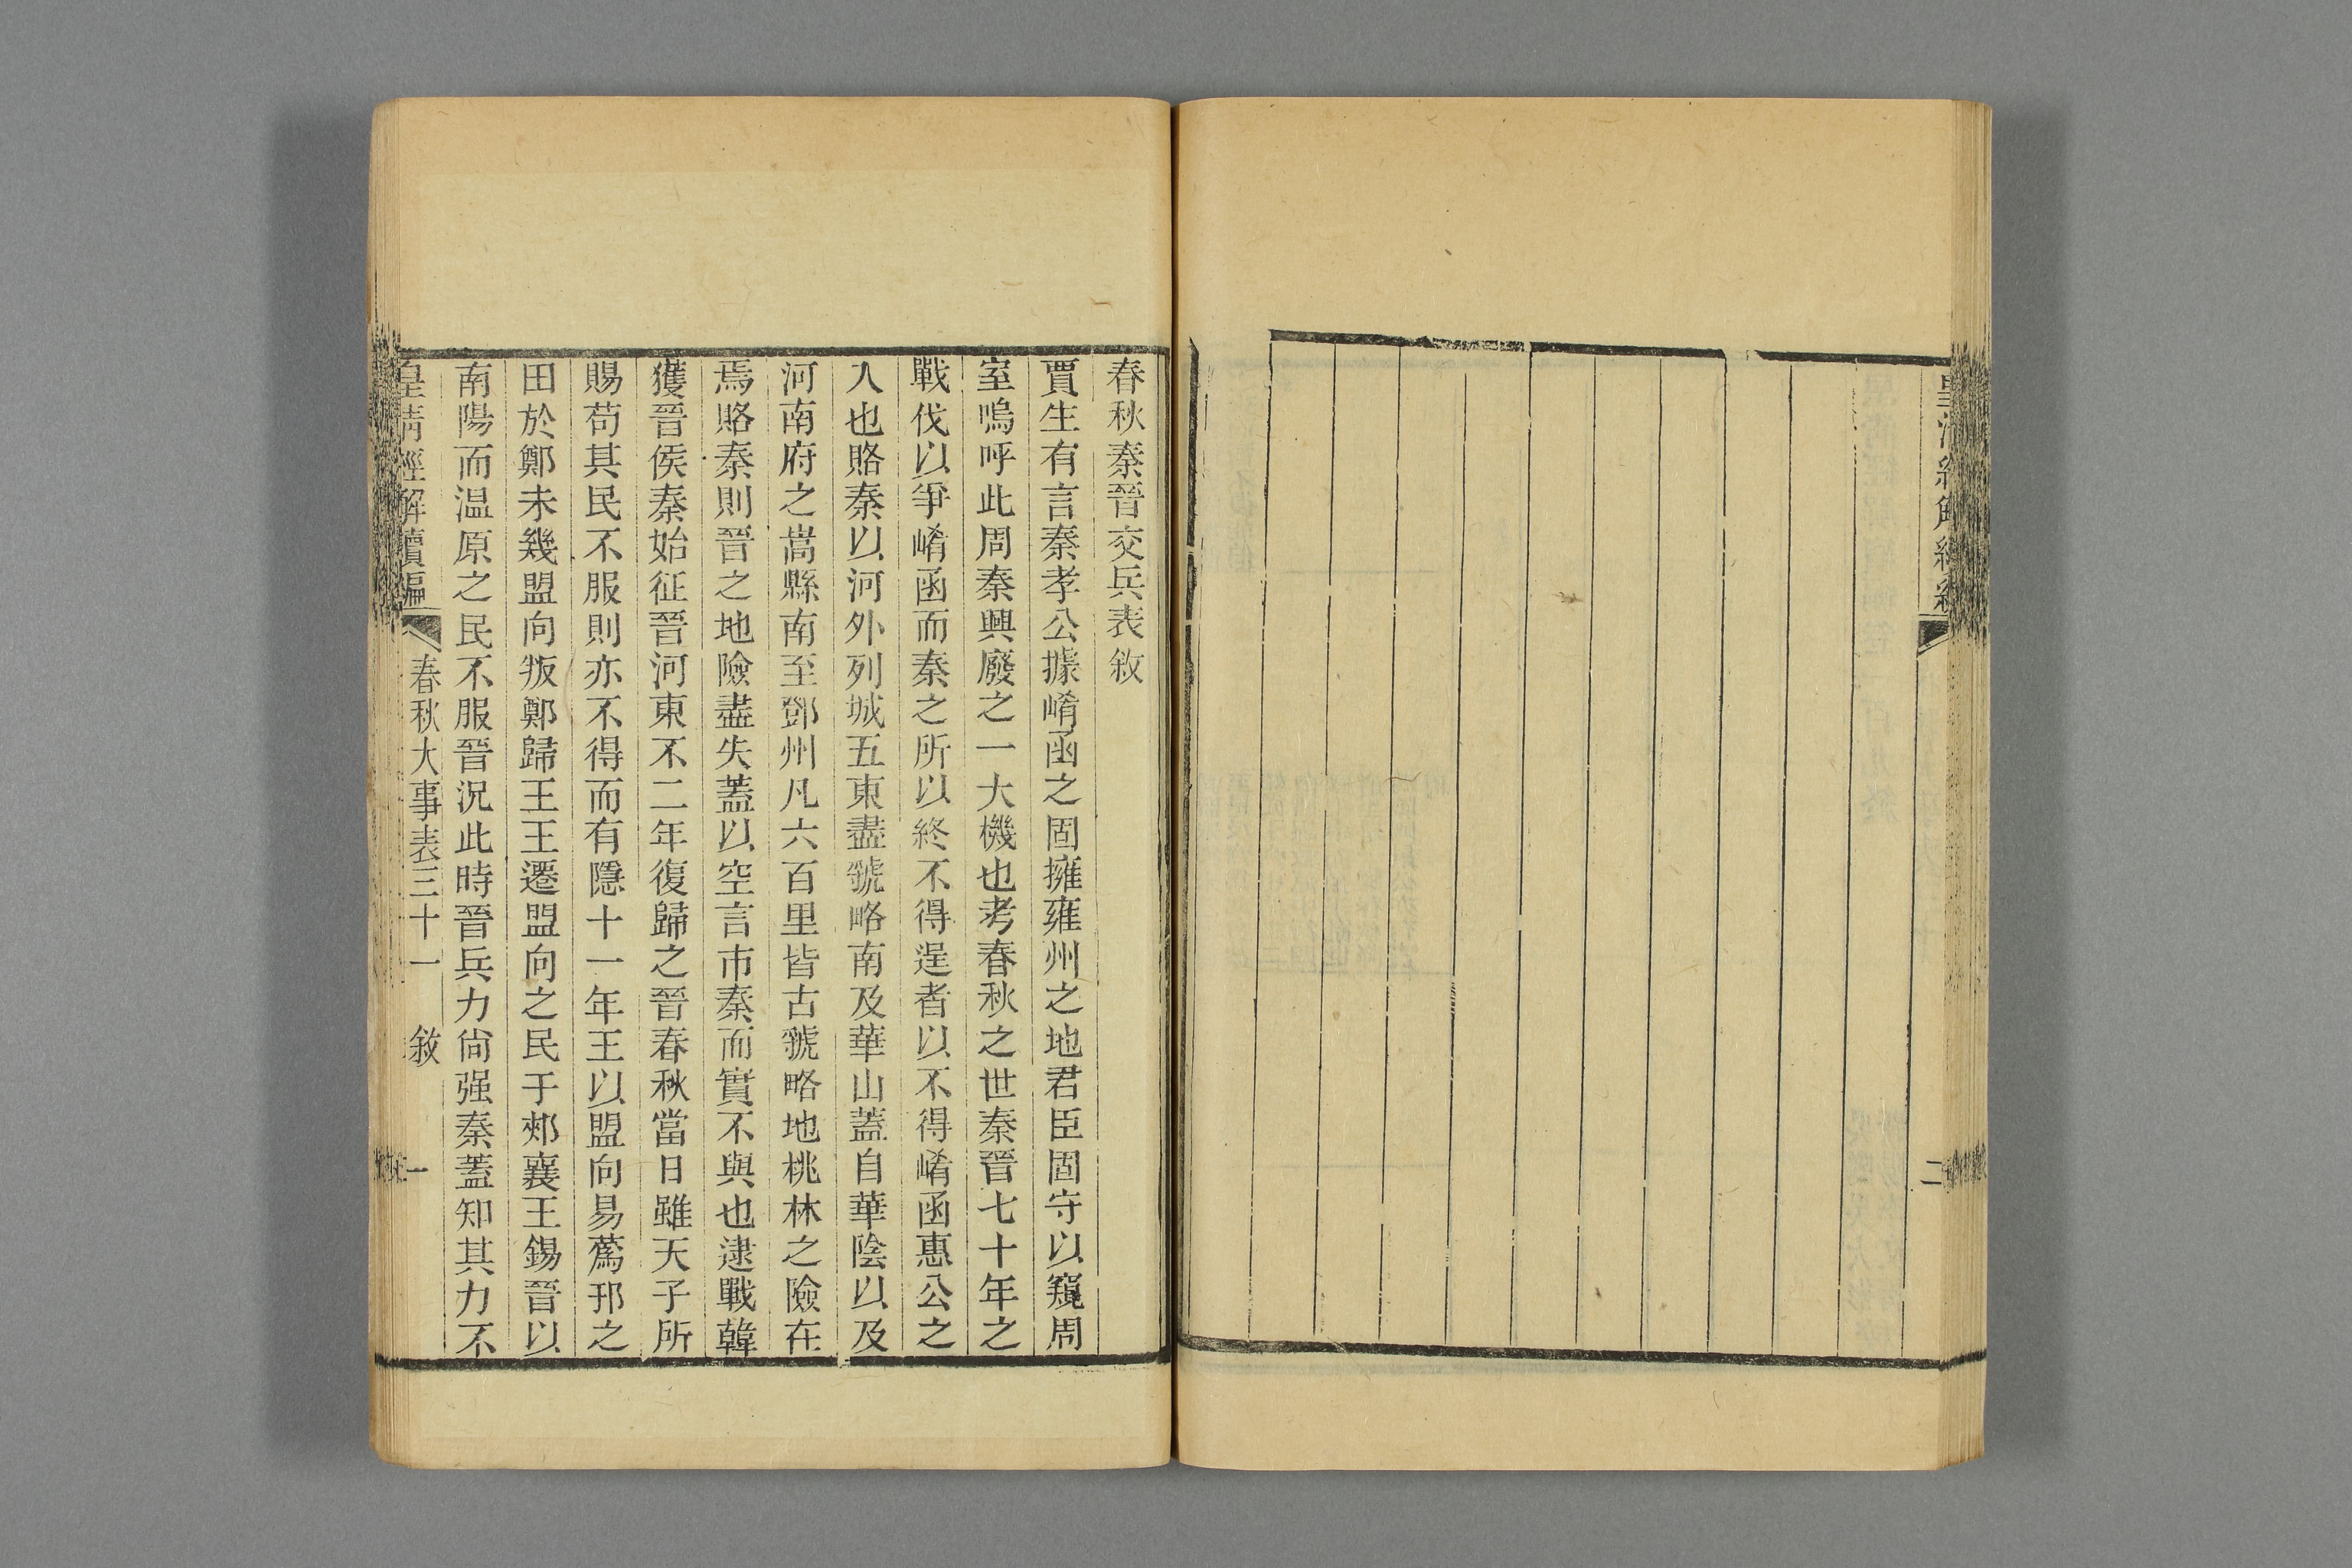 二
春秋秦晉交兵表敘
賈生有言秦孝公據崤函之固擁雍州之地君臣固守以窺周
室嗚呼此周秦興廢之一大機也考春秋之世秦晉七十年之
戰伐以爭崤函而秦之所以終不得逞者以不得崤函惠公之
入也賂秦以河外列城五東盡虢略南及華山蓋自華陰以及
河南府之嵩縣南至鄧州凡六百里皆古虢略地桃林之險在
焉賂秦則晉之地險盡失蓋以空言市秦而實不與也逮戰韓
獲晉侯秦始征晉河東不二年復歸之晉春秋當日雖天子所
賜苟其民不服則亦不得而有隱十一年王以盟向易蒍邘之
田於鄭未幾盟向叛鄭歸王王遷盟向之民于郟襄王錫晉以
南陽而温原之民不服晉況此時晉兵力尙强秦蓋知其力不
皇清經解續編 春秋大事表三十一 敘 一